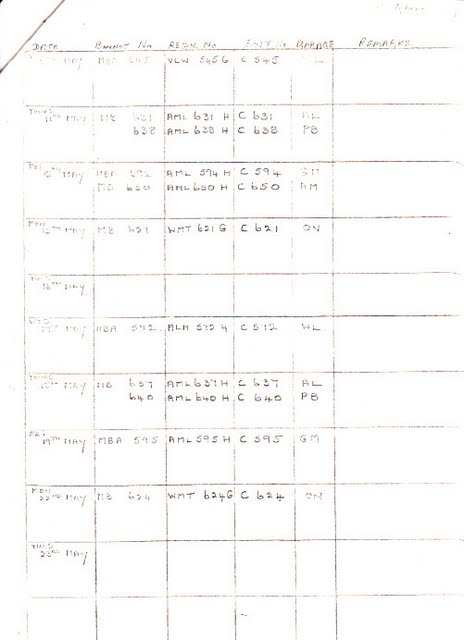 DATE BONNET No REGN. No BODY No GARAGE REMARKS
MAY MBA 545 VLW 545 G C 545
THURS
11TH MAY MB 631 AML 631 H C 631 AL
638 AML 638 H C 638 PB
FRI
12TH MAY MBA 594 AML 594 H C 594 GM
MB 650 AML 650 H C 650 AM
MON
15TH MAY MB 621 WMT 621 G C 621 ON
TUES
16TH MAY
WED
17TH MAY MBA 572 572 H C 572 WL
THURS
18TH MAY MB 637 AML 637 H C 637 AL
640 AML 640 H C 640 PB
FRI
19TH MAY MBA 595 AML 595 H C 595 GM
MON
22ND MAY MB 624 WMT 624G C 624 ON
TUES
23RD MAY